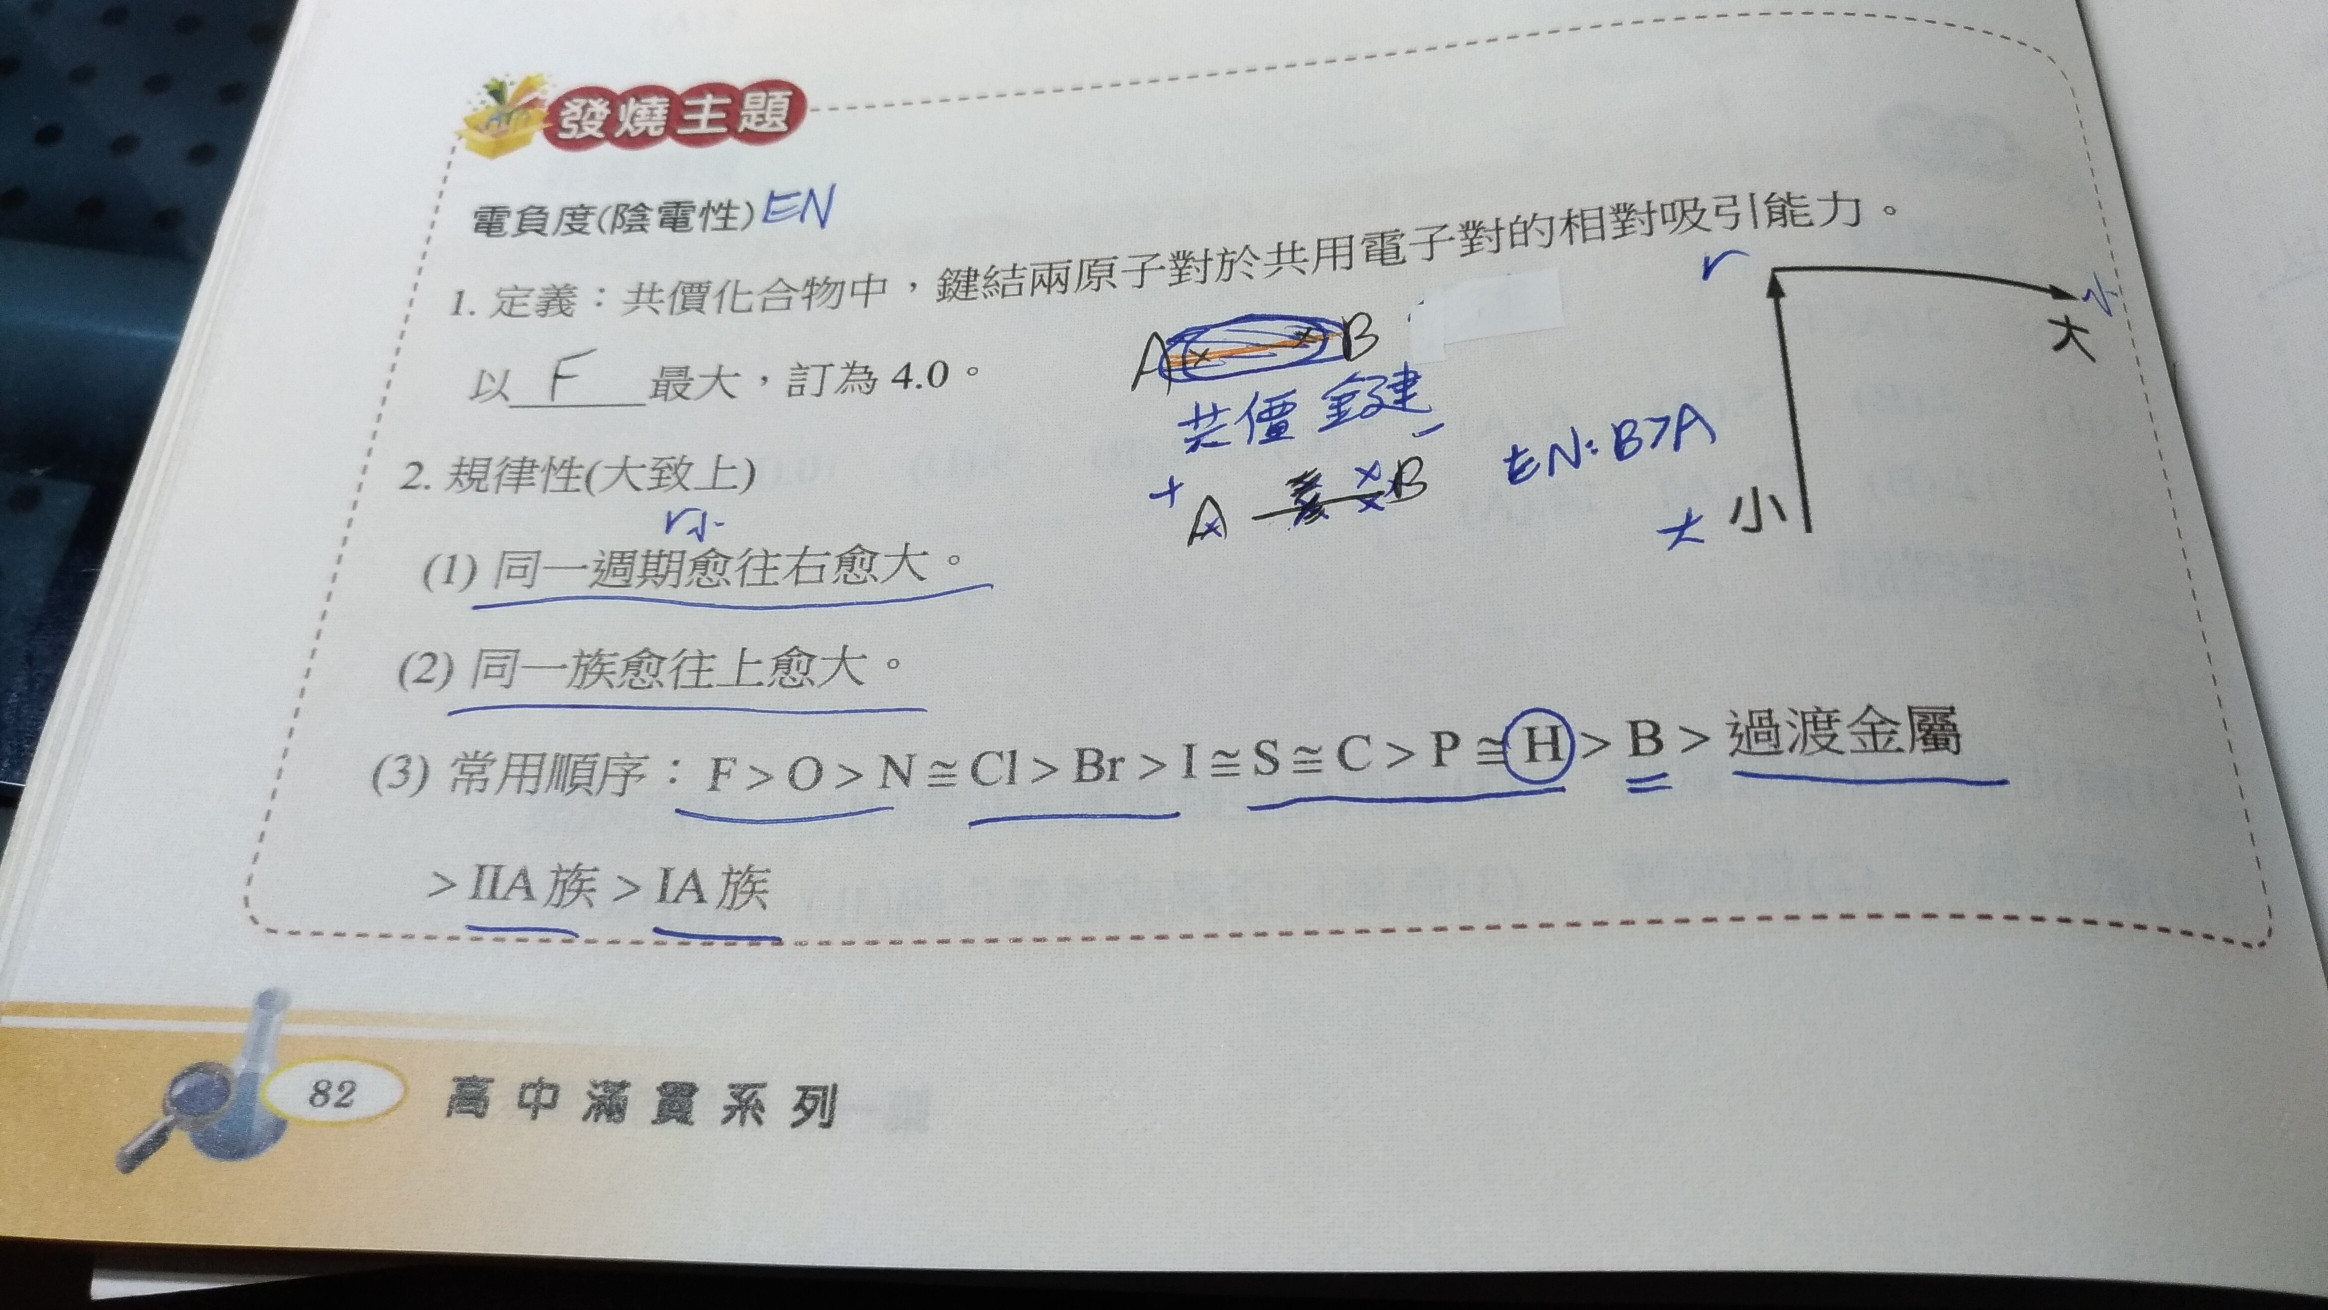 發燒主題
電負度(陰電性) EN
1. 定義：共價化合物中，鍵結兩原子對於共用電子對的相對吸引能力。
以 F 最大，訂為 4.0。
A × × B
共價鍵
+ A × × B −
EN: B>A
r
小
大
大 小
2. 規律性(大致上)
r小
(1) 同一週期愈往右愈大。
(2) 同一族愈往上愈大。
(3) 常用順序：F > O > N ≅ Cl > Br > I ≅ S ≅ C > P ≅ H > B > 過渡金屬
> IIA 族 > IA 族
82 高中滿貫系列